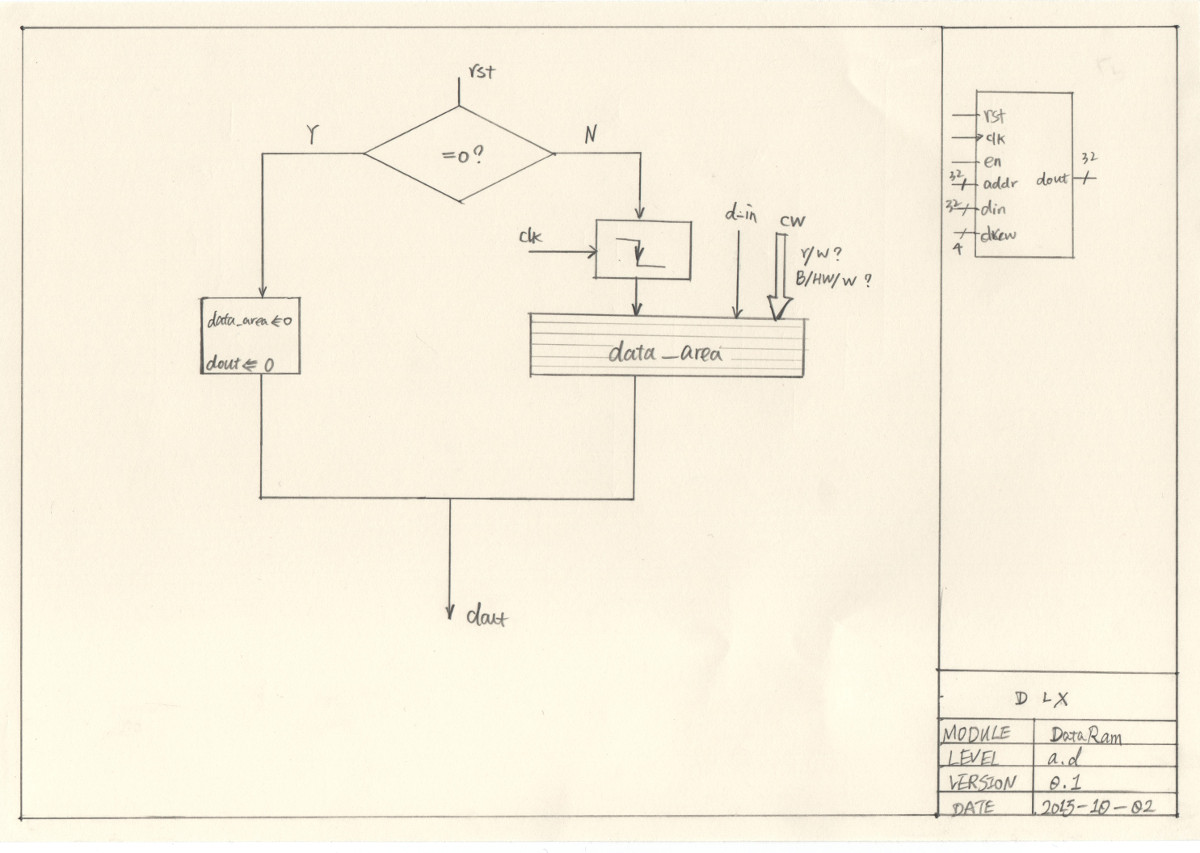 rst
Y
N
=0?
clk
d-in
cw
r/w?
B/HW/W ?
data_area ⇐ 0
dout ⇐ 0
data_area
dout
rst
clk
en
32
addr
32
din
4
dout
32
DLX
MODULE DataRam
LEVEL a.d
VERSION 0.1
DATE 2015-10-02